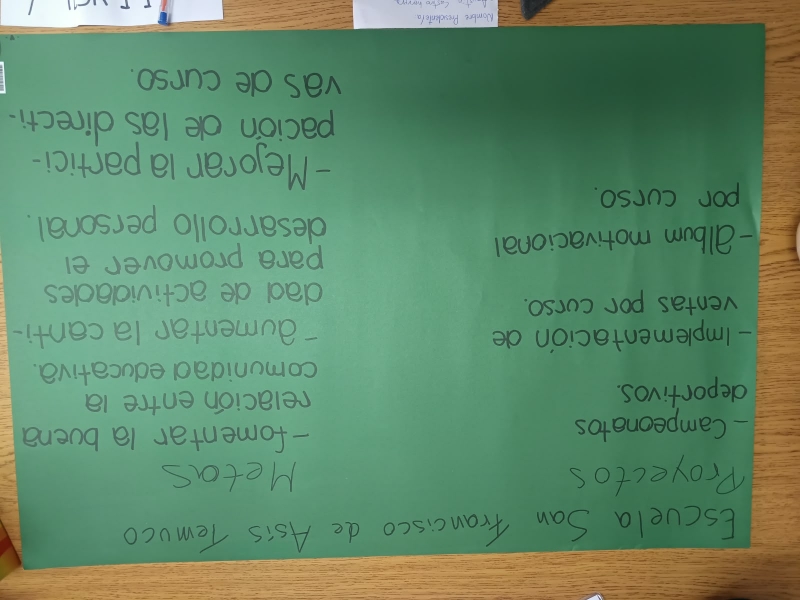 Escuela San Francisco de Asís Temuco
Proyectos
- Campeonatos
deportivos.
- Implementación de
ventas por curso.
- álbum motivacional
por curso.
Metas
- fomentar la buena
relación entre la
comunidad educativa.
- aumentar la canti-
dad de actividades
para promover el
desarrollo personal.
- Mejorar la partici-
pación de las directi-
vas de curso.
Nombre Presidente/a